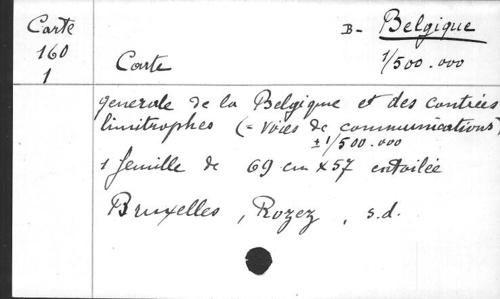 Carte
160
1
B- Belgique
1/500.000
Carte
generale de la Belgique et des contrées
limitrophes (= voies de communications)
±1/500.000
1 feuille de 69 cm x 57 entoilée
Bruxelles, Rozez, s.d.